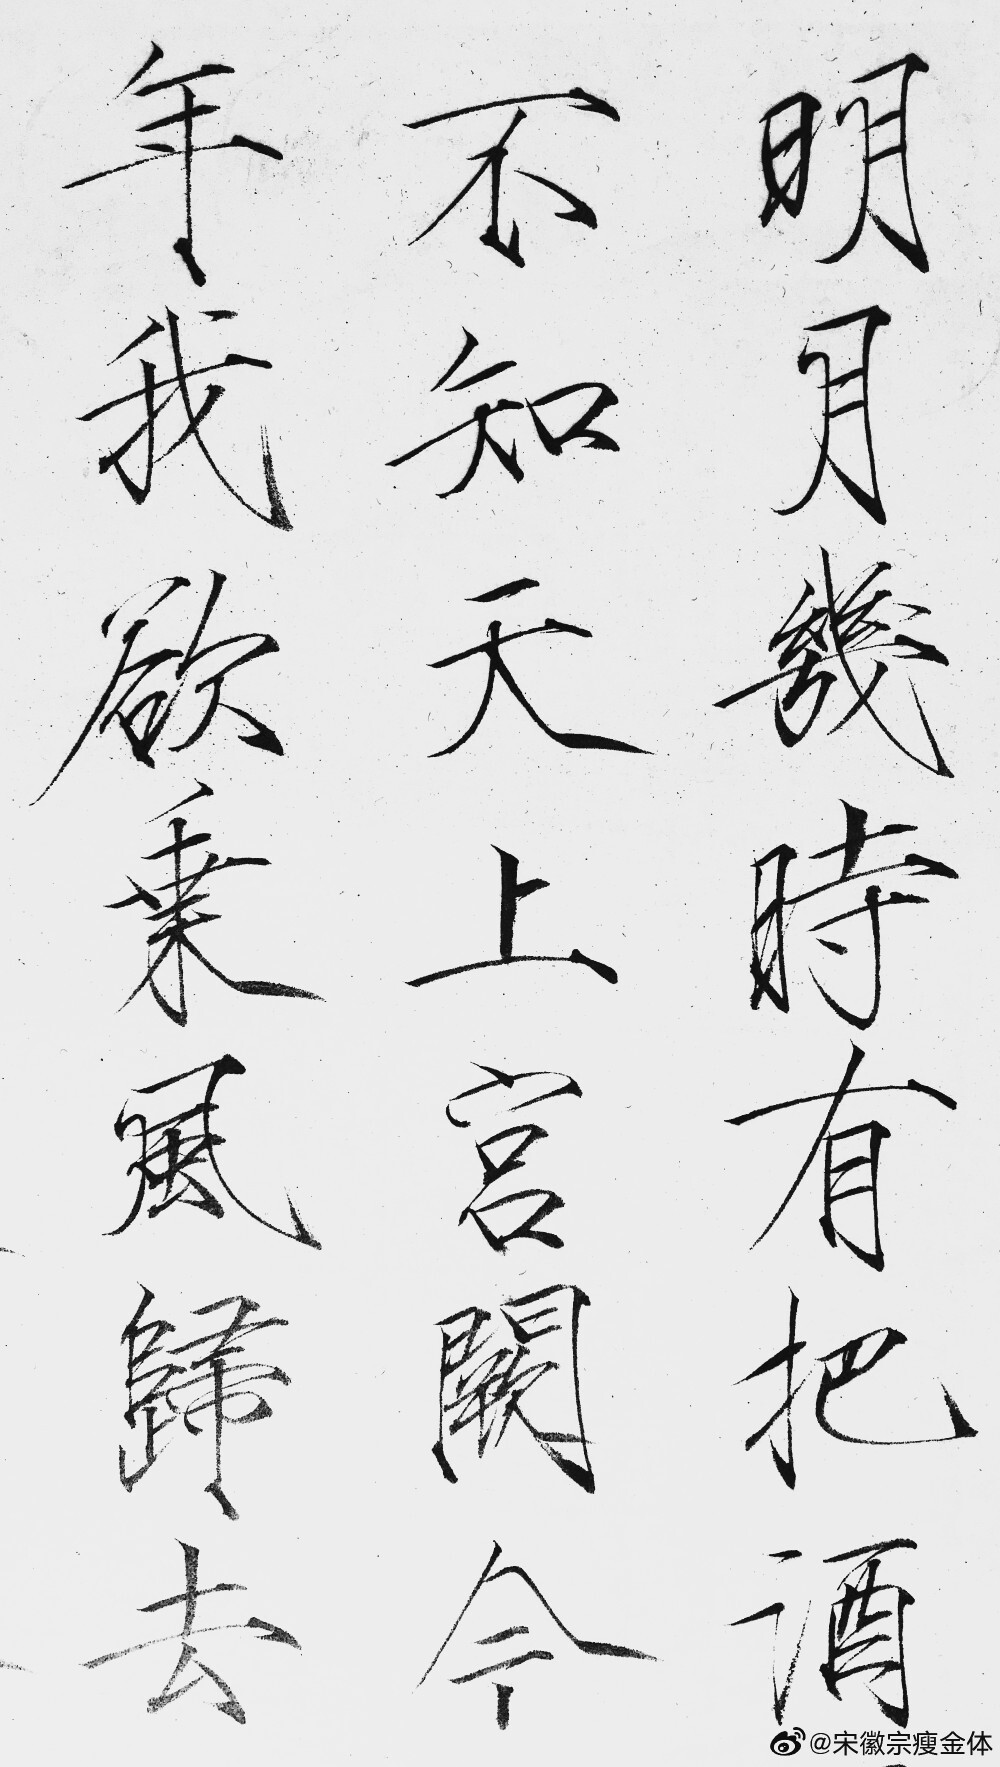 明月幾時有把酒
不知天上宮闕今
年我欲乗風歸去
@宋徽宗瘦金体